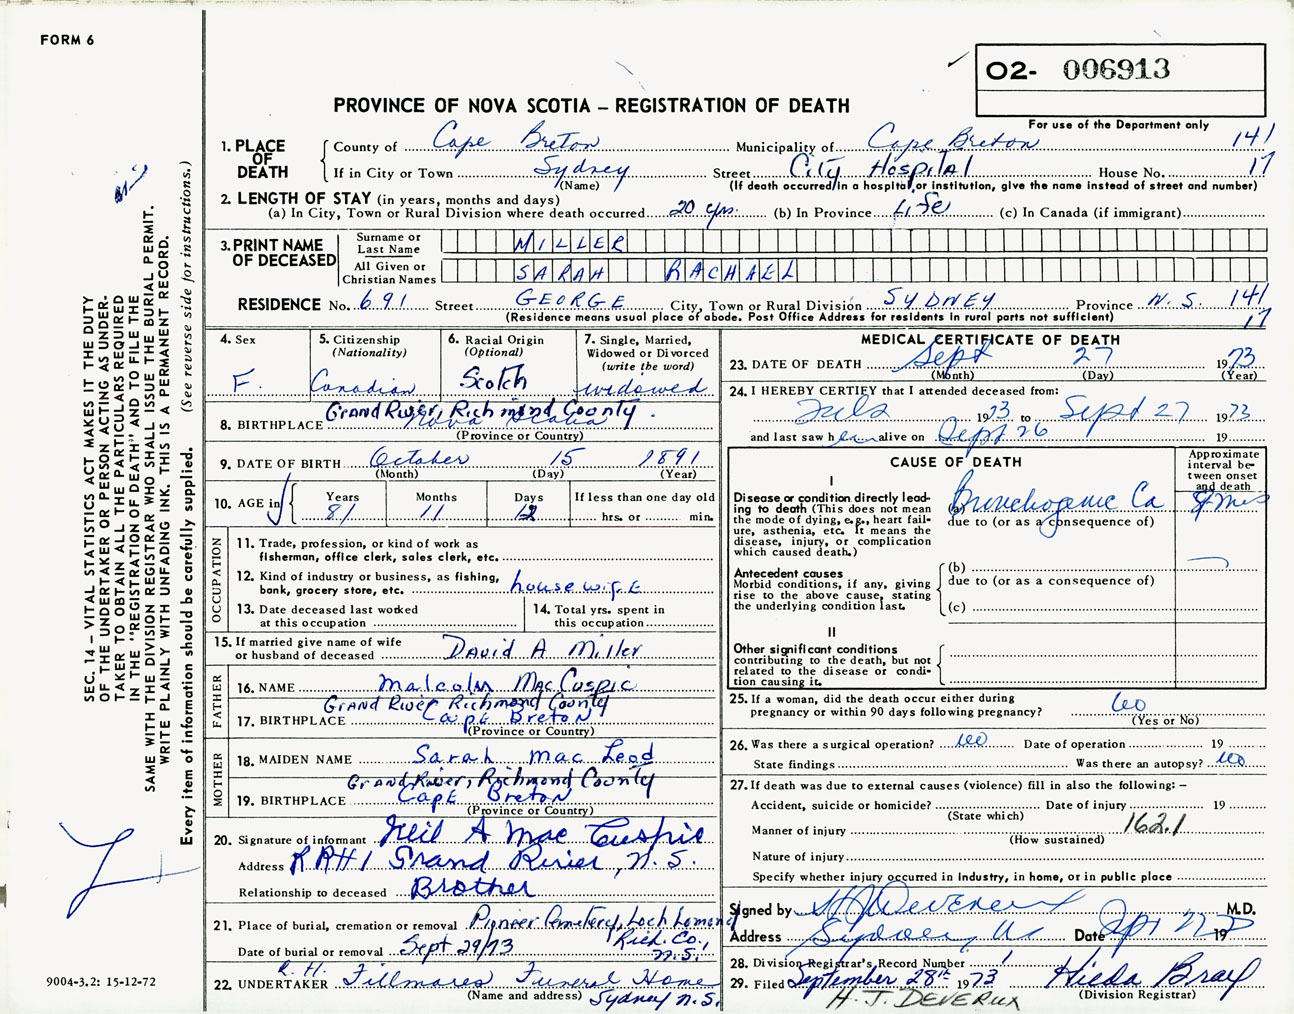 FORM 6
O2- 006913
For use of the Department only
PROVINCE OF NOVA SCOTIA – REGISTRATION OF DEATH
1. PLACE OF DEATH
County of Cape Breton Municipality of Cape Breton 141
If in City or Town Sydney Street City Hospital House No. 17
(Name) (If death occurred in a hospital or institution, give the name instead of street and number)
2. LENGTH OF STAY (in years, months and days)
(a) In City, Town or Rural Division where death occurred 20 yrs. (b) In Province Life (c) In Canada (if immigrant)
3. PRINT NAME OF DECEASED
Surname or Last Name MILLER
All Given or Christian Names SARAH RACHAEL
RESIDENCE No. 691 Street GEORGE City, Town or Rural Division SYDNEY Province N.S. 141
(Residence means usual place of abode. Post Office Address for residents in rural parts not sufficient) 17
4. Sex F.
5. Citizenship (Nationality) Canadian
6. Racial Origin (Optional) Scotch
7. Single, Married, Widowed or Divorced (write the word) widowed
Grand River, Richmond County.
8. BIRTHPLACE Nova Scotia
(Province or Country)
9. DATE OF BIRTH October 15 1891
(Month) (Day) (Year)
10. AGE in Years 81 Months 11 Days 12 If less than one day old hrs. or min.
OCCUPATION
11. Trade, profession, or kind of work as fisherman, office clerk, sales clerk, etc.
12. Kind of industry or business, as fishing, bank, grocery store, etc. housewife
13. Date deceased last worked at this occupation
14. Total yrs. spent in this occupation
15. If married give name of wife or husband of deceased David A Miller
FATHER
16. NAME Malcolm MacCuspic
Grand River Richmond County
17. BIRTHPLACE Cape Breton
(Province or Country)
MOTHER
18. MAIDEN NAME Sarah MacLeod
Grand River, Richmond County
19. BIRTHPLACE Cape Breton
(Province or Country)
20. Signature of informant Neil A MacCuspic
Address RR#1 Grand River, N.S.
Relationship to deceased Brother
21. Place of burial, cremation or removal Pioneer Cemetery, Loch Lomond
Rich. Co., N.S.
Date of burial or removal Sept 29/73
22. UNDERTAKER R.H. Fillmores Funeral Home
(Name and address) Sydney N.S.
MEDICAL CERTIFICATE OF DEATH
23. DATE OF DEATH Sept 27 1973
(Month) (Day) (Year)
24. I HEREBY CERTIFY that I attended deceased from:
1973 to Sept 27 1973
and last saw her alive on Sept 26 19
CAUSE OF DEATH
Approximate interval between onset and death
I
Disease or condition directly leading to death (This does not mean the mode of dying, e.g., heart failure, asthenia, etc. It means the disease, injury, or complication which caused death.)
(a) Bronchogenic Ca
due to (or as a consequence of)
Antecedent causes
Morbid conditions, if any, giving rise to the above cause, stating the underlying condition last.
(b)
due to (or as a consequence of)
(c)
II
Other significant conditions contributing to the death, but not related to the disease or condition causing it.
25. If a woman, did the death occur either during pregnancy or within 90 days following pregnancy? No
(Yes or No)
26. Was there a surgical operation? No Date of operation 19
State findings Was there an autopsy? No
27. If death was due to external causes (violence) fill in also the following: –
Accident, suicide or homicide? Date of injury 19
(State which)
Manner of injury 162.1
(How sustained)
Nature of injury
Specify whether injury occurred in industry, in home, or in public place
Signed by HJ Devereux M.D.
Address Sydney, NS Date 19
28. Division Registrar's Record Number 1
29. Filed September 28th 1973 Hilda Bray
(Division Registrar)
H. J. DEVERUX
SEC. 14 – VITAL STATISTICS ACT MAKES IT THE DUTY
OF THE UNDERTAKER OR PERSON ACTING AS UNDER-
TAKER TO OBTAIN ALL THE PARTICULARS REQUIRED
IN THE "REGISTRATION OF DEATH" AND TO FILE THE
SAME WITH THE DIVISION REGISTRAR WHO SHALL ISSUE THE BURIAL PERMIT.
WRITE PLAINLY WITH UNFADING INK. THIS IS A PERMANENT RECORD.
Every item of information should be carefully supplied. (See reverse side for instructions.)
9004-3.2: 15-12-72